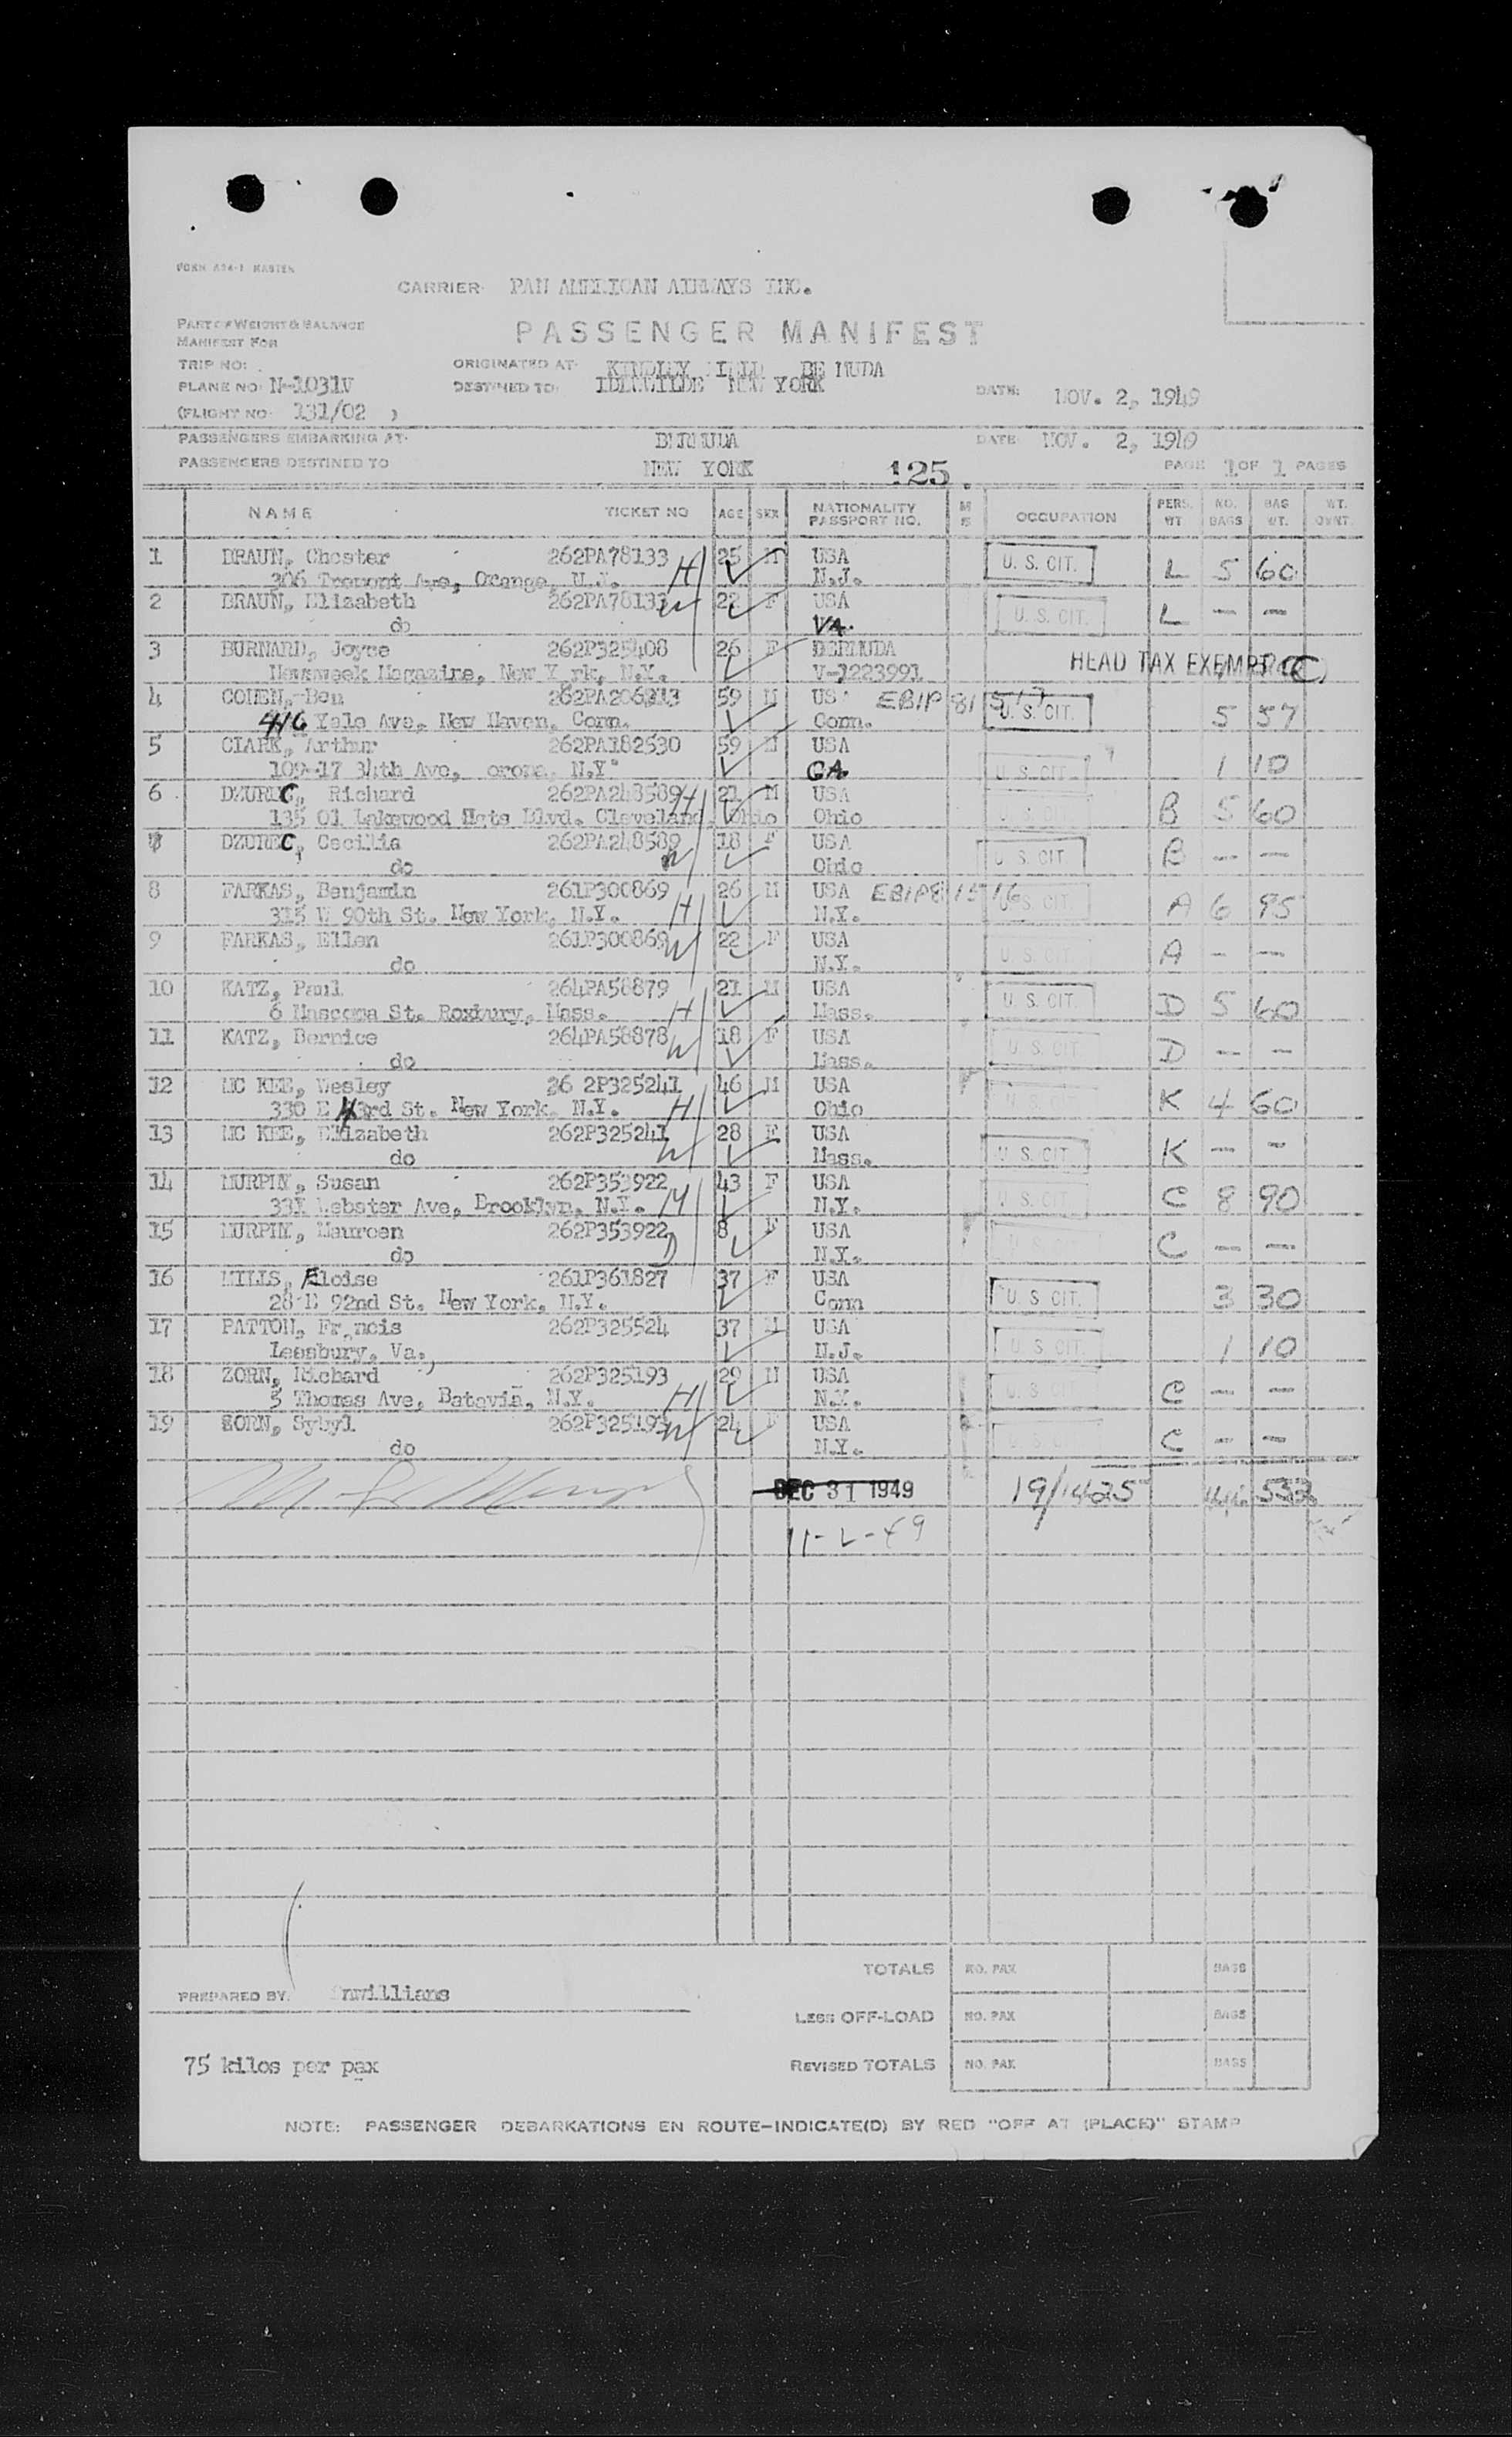 FORM A24-1 MASTER
CARRIER PAN AMERICAN AIRWAYS INC.
PART OF WEIGHT & BALANCE
MANIFEST FOR
PASSENGER MANIFEST
TRIP NO:
ORIGINATED AT: KINDLEY FIELD BE MUDA
PLANE NO: N-1031V
DESTINED TO: IDLEWILDE NEW YORK
DATE: NOV. 2, 1949
(FLIGHT NO. 131/02 )
PASSENGERS EMBARKING AT: BERMUDA DATE NOV. 2, 1949
PASSENGERS DESTINED TO NEW YORK 125 PAGE 1 OF 1 PAGES
NAME TICKET NO AGE SEX NATIONALITY PASSPORT NO. M S OCCUPATION PERS. WT NO. BAGS BAG WT. WT. OVNT.
1 BRAUN, Chester 262PA78133 H 25 M USA U. S. CIT. L 5 60
306 Tremont Ave, Orange, N.J. N.J.
2 BRAUN, Elizabeth 262PA78133 W 22 F USA U. S. CIT. L - -
do VA.
3 BURNARD, Joyce 262P325408 26 F BERMUDA HEAD TAX EXEMPT
Newsweek Magazine, New Y rk, N.Y. V-1223991
4 COHEN, Ben 59 M US EBIP 81 U. S. CIT. 5 57
416 Yale Ave, New Haven, Conn. Conn.
5 CLARK, Arthur 262PA182530 59 M USA U. S. CIT. 1 10
109-17 34th Ave, orona, N.Y GA.
6 DZUREC, Richard 262PA248589 H 21 M USA U. S. CIT. B 5 60
135 01 Lakewood Hgts Blvd. Cleveland, Ohio Ohio
7 DZUREC, Cecilia 262PA248589 W 18 F USA U. S. CIT. B - -
do Ohio
8 FARKAS, Benjamin 261P300869 H 26 M USA EBIP81516 U. S. CIT. A 6 95
315 W 90th St. New York, N.Y. N.Y.
9 FARKAS, Ellen 261P300869 W 22 F USA U. S. CIT. A - -
do N.Y.
10 KATZ, Paul 264PA58879 H 21 M USA U. S. CIT. D 5 60
6 Mascoma St. Roxbury, Mass. Mass.
11 KATZ, Bernice 264PA58878 W 18 F USA U. S. CIT. D - -
do Mass.
12 MC KEE, Wesley 26 2P325241 H 46 M USA U. S. CIT. K 4 60
330 E 43rd St. New York, N.Y. Ohio
13 MC KEE, Elizabeth 262P325241 W 28 F USA U. S. CIT. K - -
do Mass.
14 Susan 262P353922 M 43 F USA U. S. CIT. C 8 90
331 Webster Ave, Brooklyn, N.Y. N.Y.
15 Maureen 262P353922 D 8 F USA U. S. CIT. C - -
do N.Y.
16 MILLS, Eloise 261P361827 37 F USA U. S. CIT. 3 30
28 E 92nd St. New York, N.Y. Conn
17 PATTON, Fr ncis 262P325524 37 M USA U. S. CIT. 1 10
Leesbury, Va. N.J.
18 ZORN, Richard 262P325193 H 29 M USA U. S. CIT. C - -
5 Thomas Ave, Batavia, N.Y. N.Y.
19 ZORN, Sybyl 262P325193 W 24 F USA U. S. CIT. C - -
do N.Y.
DEC 31 1949 19/1425 44 532
11-2-49
TOTALS NO. PAX BAGS
PREPARED BY. nwilliams
LESS OFF-LOAD NO. PAX BAGS
75 kilos per pax
REVISED TOTALS NO. PAX BAGS
NOTE: PASSENGER DEBARKATIONS EN ROUTE-INDICATE(D) BY RED "OFF AT (PLACE)" STAMP